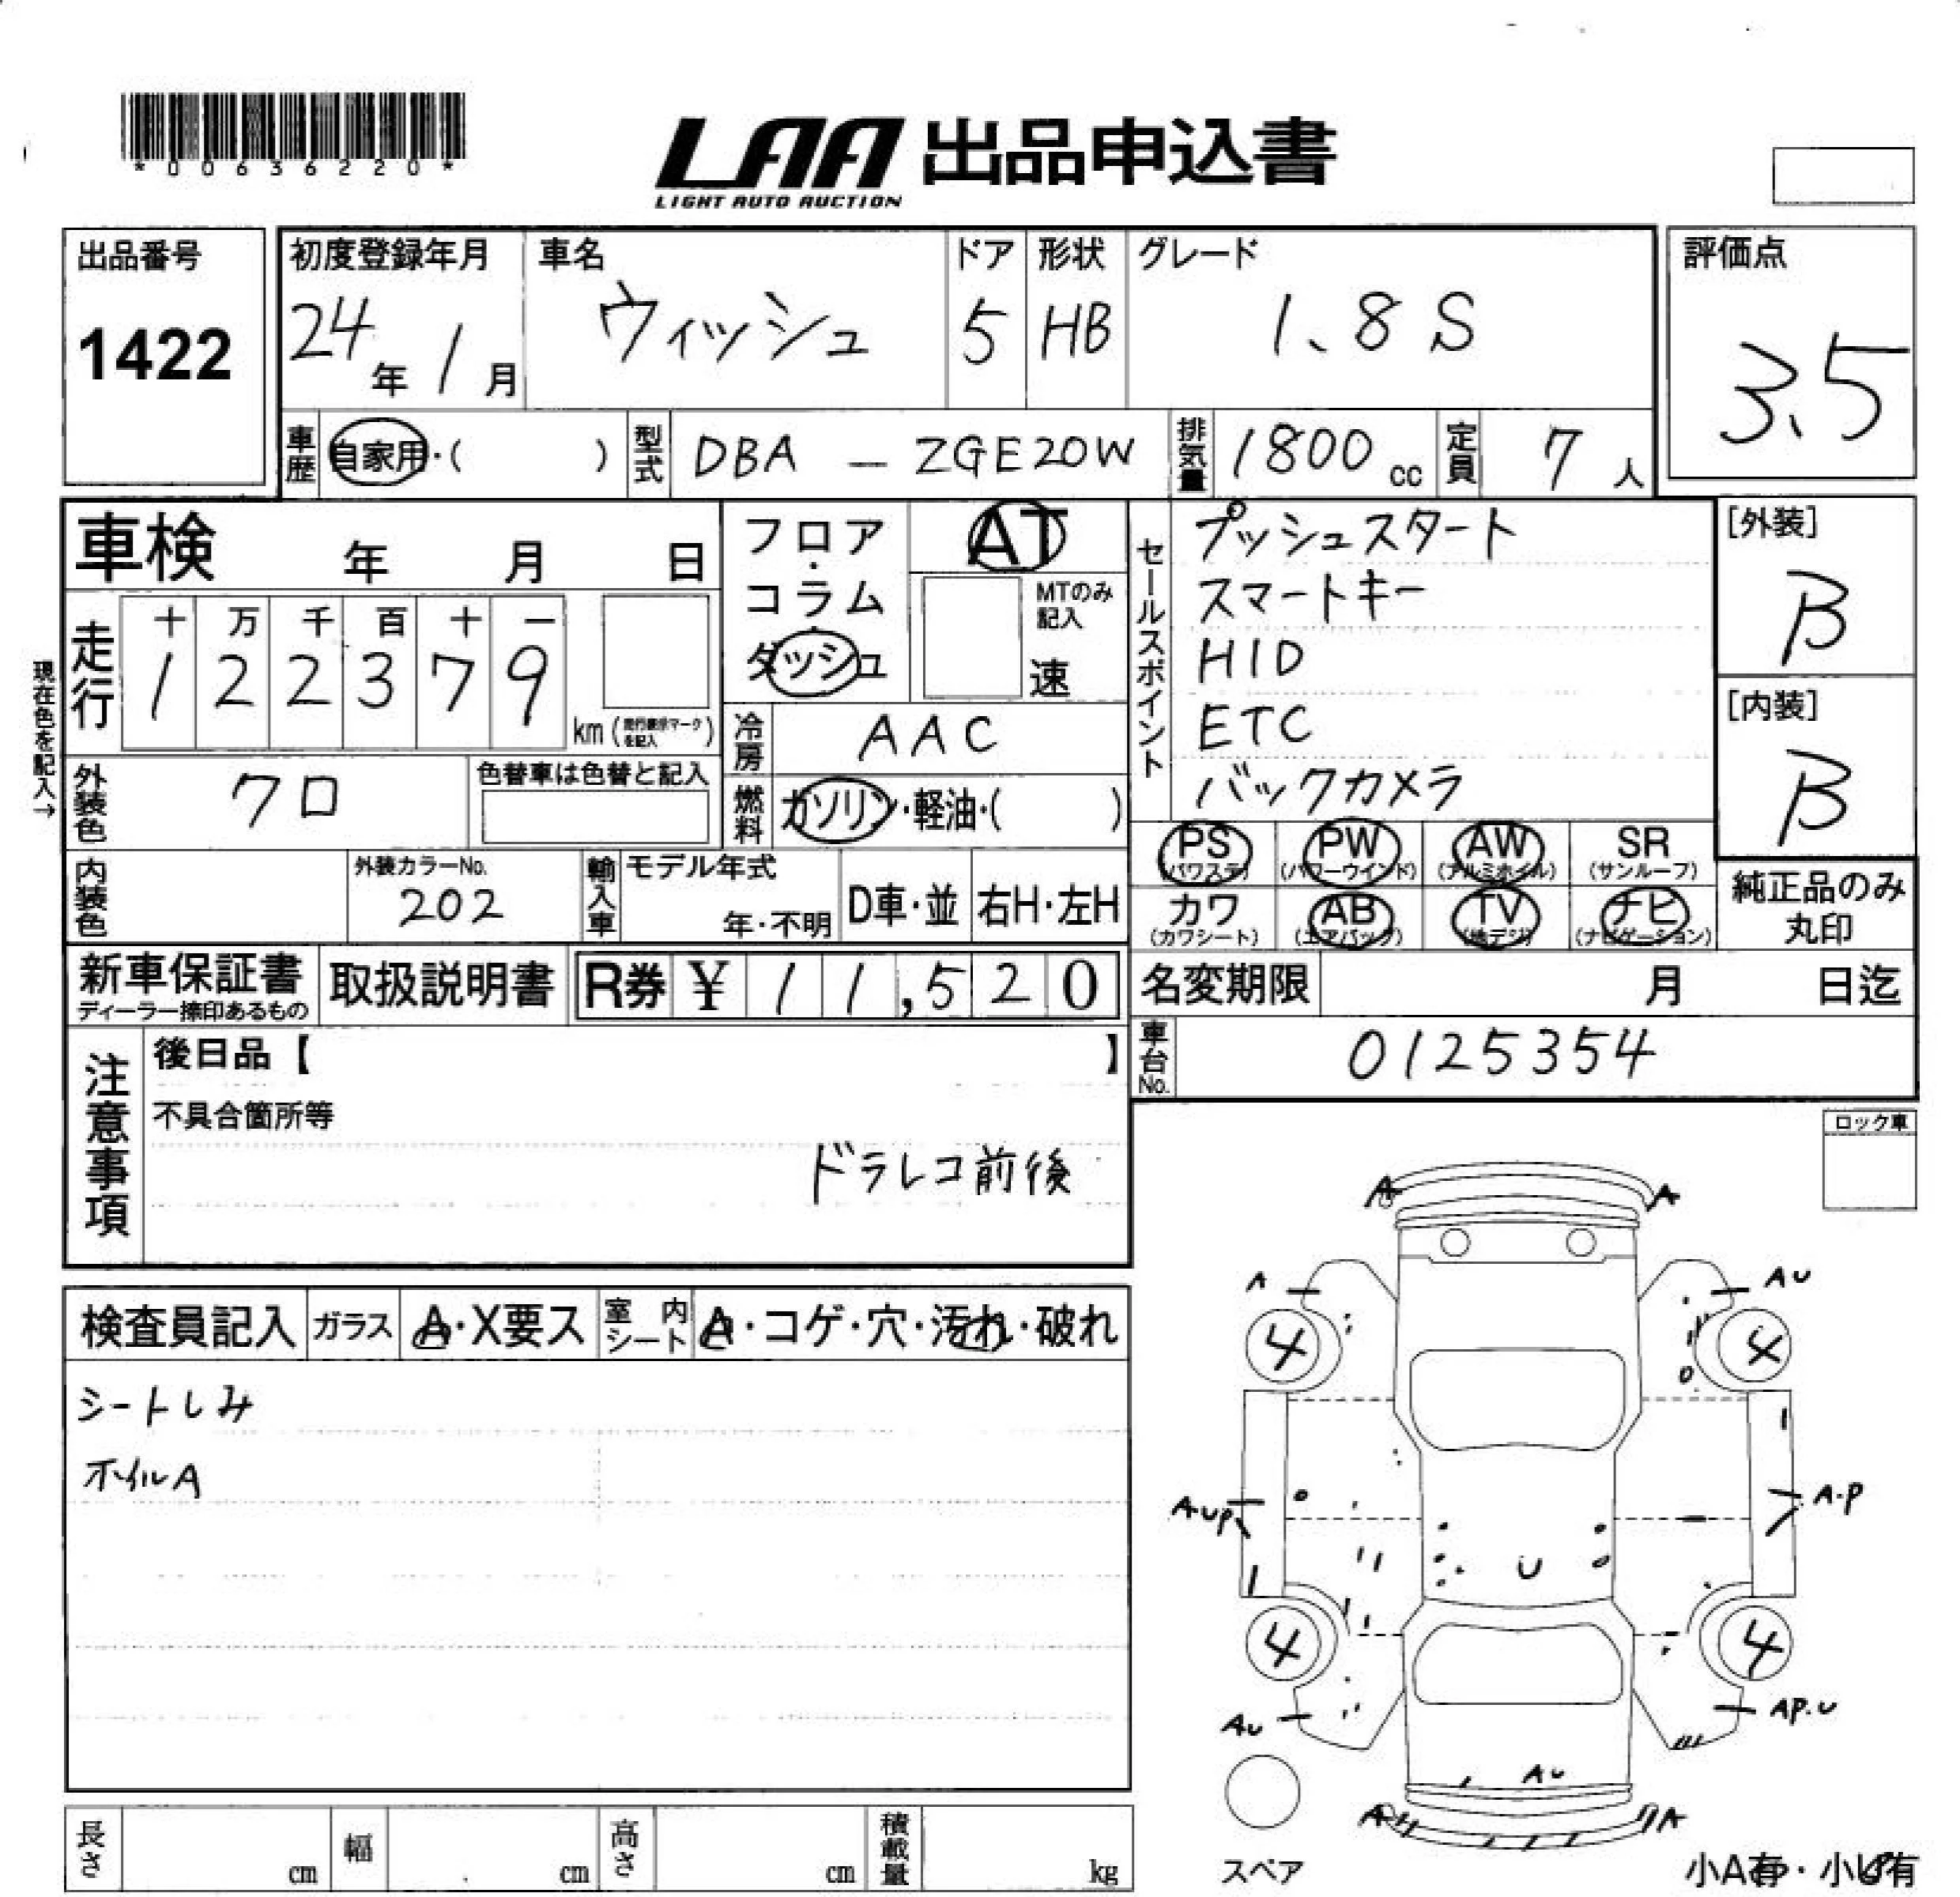 *00636220*
LAA 出品申込書
LIGHT AUTO AUCTION
出品番号
1422
初度登録年月
24年 1月
車名
ウィッシュ
ドア
5
形状
HB
グレード
1.8 S
評価点
3.5
車歴
自家用・( )
型式
DBA - ZGE20W
排気量
1800 cc
定員
7 人
車検 年 月 日
フロア・コラム・ダッシュ
AT
MTのみ記入
速
セールスポイント
プッシュスタート
スマートキー
HID
ETC
バックカメラ
[外装]
B
[内装]
B
現在色を記入→
走行
十 万 千 百 十 一
1 2 2 3 7 9
km (走行表示マークを記入)
冷房
AAC
外装色
クロ
色替車は色替と記入
燃料
ガソリン・軽油・( )
PS (パワステ)
PW (パワーウインド)
AW (アルミホイル)
SR (サンルーフ)
カワ (カワシート)
AB (エアバッグ)
TV (地デジ)
ナビ (ナビゲーション)
純正品のみ丸印
内装色
外装カラーNo.
202
輸入車
モデル年式
年・不明
D車・並
右H・左H
新車保証書
ディーラー捺印あるもの
取扱説明書
R券 ¥ 11,520
名変期限 月 日迄
車台No.
0125354
注意事項
後日品【 】
不具合箇所等
ドラレコ前後
ロック車
検査員記入
ガラス
A・X要ス
室内シート
A・コゲ・穴・汚れ・破れ
シートしみ
ホイルA
A A
A AU
4 4
AUP A・P
U
4 4
AU AP.U
AU
A A
スペア
小A有・小U有
長さ cm
幅 cm
高さ cm
積載量 kg